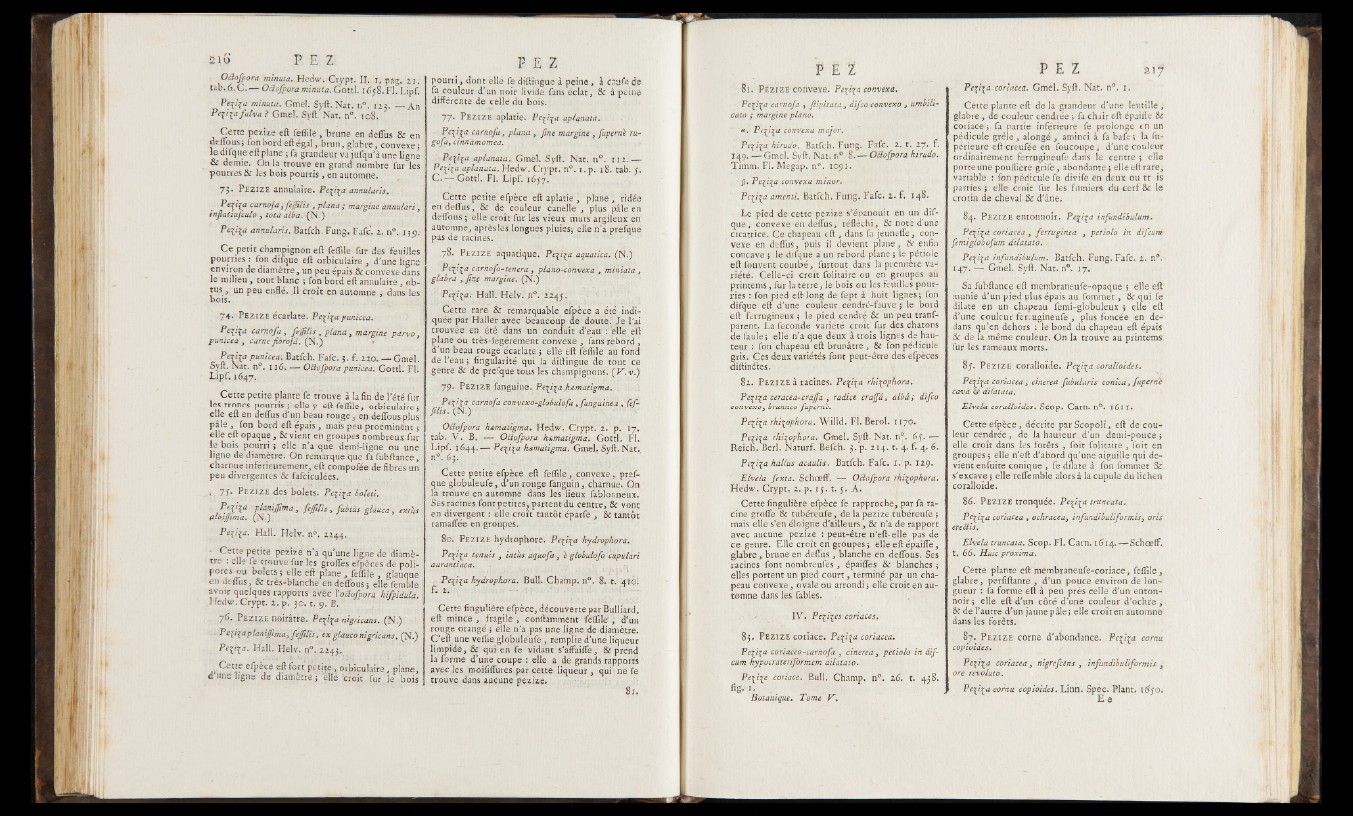 216 PEZ
Octospora minuta. Hedw. Crypt. II. 1. pag. 22.
tab. 6. C. — Octospora minuta. Gottl. 1658. Fl. Lipf.
Peziza minuta. Gmel. Syst. Nat. n°. 123. — An
Peziza fulva? Gmel. Syst. Nat. n°. 108.
Cette pezize est sessile, brune en dessus & en
dessous; son bord est égal, brun, glabre, convexe;
le disque est plane; sa grandeur va jusqu'à une ligne
& demie. On la trouve en grand nombre sur les
poutres & les bois pourris, en automne.
73. PEZIZE annulaire. Peziza annularis.
Peziza carnosa, sessilis, plana; margine annulari,
inflatiusculo, tota alba. (N.)
Peziza annularis. Batsch. Fung. Fasc. 2. n°. 139.
Ce petit champignon est sessile sur des feuilles
pourries: son disque est orbiculaire, d'une ligne
environ de diamètre, un peu épais & convexe dans
le milieu, tout blanc; son bord est annulaire, ob-
tus, un peu enflé. Il croît en automne, dans les
bois.
74. PEZIZE écarlate. Peziza punicea.
Peziza carnosa, sessilis, plana, margine parvo,
punicea, carne fibrosâ. (N.)
Peziza punicea. Batsch. Fasc. 3. f. 220. — Gmel.
Syst. Nat. n°. 116. — Octospora punicea. Gottl. Fl.
Lipf. 1647.
Cette petite plante se trouve à la fin de l'été sur
les troncs pourris; elle y est sessile, orbiculaire;
elle est en dessus d'un beau rouge, en dessous plus
pâle, son bord est épais, mais peu proéminent;
elle est opaque, & vient en groupes nombreux sur
le bois pourri; elle n'a que demi-ligne ou une
ligne de diamètre. On remarque que sa substance,
charnue inférieurement, est composée de fibres un
peu divergentes & fasciculées.
75. PEZIZE des bolets. Peziza boleti.
Peziza planissima, sessilis, subtùs glauca, extùs
albissima. (N.)
Peziza. Hall. Helv. n°. 2244.
Cette petite pezize n'a qu'une ligne de diamè-
tre: elle se trouve sur les grosses espèces de poli-
pores ou bolets; elle est plane, sessile, glauque
en dessus, & très-blanche en dessous; elle semble
avoir quelques rapports avec l'octospora hispidula.
Hedw. Crypt. 2. p. 30. t. 9. B.
76. PEZIZE noirâtre. Peziza nigricans. (N.)
Peziza planissima, sessilis, ex glauco nigricans. (N.)
Peziza. Hall. Helv. n°. 2243.
Cette espèce est fort petite, orbiculaire, plane,
d'une ligne de diamètre; elle croît sur le bois
PEZ
pourri, dont elle se distingue à peine, à cause de
sa couleur d'un noir livide sans éclat, & à peine
différente de celle du bois.
77. PEZIZE aplatie. Peziza aplanata.
Peziza carnosa, plana, sine margine, supernè ru-
gosa, cinnamomea.
Peziza aplanata. Gmel. Syst. Nat. n°. 112. —
Peziza aplanata. Hedw. Crypt. n°. 1. p. 18. tab. 5.
C. — Gottl. Fl. Lipf. 1657.
Cette petite espèce est aplatie, plane, ridée
en dessus, & de couleur canelle, plus pâle en
dessous; elle croît sur les vieux murs argileux en
automne, après les longues pluies; elle n'a presque
pas de racines.
78. PEZIZE aquatique. Peziza aquatica. (N.)
Peziza carnoso-tenera, plano-convexa, miniata,
glabra, sine margine. (N.)
Peziza. Hall. Helv. n°. 2245.
Cette rare & remarquable espèce a été indi-
quée par Haller avec beaucoup de doute. Je l'ai
trouvée en été dans un conduit d'eau: elle est
plane ou très-légèrement convexe, sans rebord,
d'un beau rouge écarlate; elle est sessile au fond
de l'eau; singularité qui la distingue de tout ce
genre & de presque tous les champignons. (V. v.)
79. PEZIZE sanguine. Peziza hæmatigma.
Peziza carnosa convexo-globulosa, sanguinea, ses-
silis. (N.)
Octospora hæmatigma. Hedw. Crypt. 2. p. 17.
tab. V. B. — Octospora hæmatigma. Gottl. Fl.
Lipf. 1644. — Peziza hæmatigma. Gmel. Syst. Nat.
n°. 63.
Cette petite espèce est sessile, convexe, pres-
que globuleuse, d'un rouge sanguin, charnue. On
la trouve en automne dans les lieux sablonneux.
Ses racines sont petites, partent du centre, & vont
en divergent: elle croît tantôt éparse, & tantôt
ramassée en groupes.
80. PEZIZE hydrophore. Peziza hydrophora.
Peziza tenuis, intùs aquosa, è globuloso cupulari
aurantiaca.
Peziza hydrophora. Bull. Champ. n°. 8. t. 410.
f. 2.
Cette singulière espèce, découverte par Bulliard,
est mince, fragile, constamment sessile, d'un
rouge orangé; elle n'a pas une ligne de diamètre.
C'est une vessie globuleuse, remplie d'une liqueur
limpide, & qui en se vidant s'affaisse, & prend
la forme d'une coupe: elle a de grands rapports
avec les moisissures par cette liqueur, qui ne se
trouve dans aucune pezize.
81.
PEZ
81. PEZIZE convexe. Peziza convexa.
Peziza carnosa, stipitata, disco convexo, umbili-
cato; margine plano.
α. Peziza convexa major.
Peziza hirudo. Batsch. Fung. Fasc. 2. t. 27. f.
149. — Gmel. Syst. Nat. n°. 8. — Octospora hirudo.
Timm. Fl. Megap. n°. 1091.
β. Peziza convexa minor.
Peziza amenti. Batsch. Fung. Fasc. 2. f. 148.
Le pied de cette pezize s'épanouit en un dis-
que, convexe en dessus, réfléchi, & noté d'une
cicatrice. Ce chapeau est, dans sa jeunesse, con-
vexe en dessus, puis il devient plane, & enfin
concave; le disque a un rebord plane; le pétiole
est souvent courbé, surtout dans la première va-
riété. Celle-ci croît solitaire ou en groupes au
printems, sur la terre, le bois ou les feuilles pour-
ries: son pied est long de sept à huit lignes; son
disque est d'une couleur cendré-fauve; le bord
est ferrugineux; le pied cendré & un peu trans-
parent. La seconde variété croît sur des chatons
de saule; elle n'a que deux à trois lignes de hau-
teur: son chapeau est brunâtre, & son pédicule
gris. Ces deux variétés sont peut-être des espèces
distinctes.
82. PEZIZE à racines. Peziza rhizophora.
Peziza ceracea-crassa, radice crassâ, albâ; disco
convexo, brunneo supernè.
Peziza rhizophora. Willd. Fl. Berol. 1170.
Peziza rhizophora. Gmel. Syst. Nat. n°. 65. —
Reich. Berl. Naturf. Besch. 3. p. 214. t. 4. f. 4. 6.
Peziza hallus acaulis. Batsch. Fasc. 1. p. 129.
Elvela sexta. Schœff. — Octospora rhizophora.
Hedw. Crypt. 2. p. 15. t. 5. A.
Cette singulière espèce se rapproche, par sa ra-
cine grosse & tubéreuse, de la pezize tubéreuse;
mais elle s'en éloigne d'ailleurs, & n'a de rapport
avec aucune pezize: peut-être n'est-elle pas de
ce genre. Elle croît en groupes; elle est épaisse,
glabre, brune en dessus, blanche en dessous. Ses
racines sont nombreuses, épaisses & blanches;
elles portent un pied court, terminé par un cha-
peau convexe, ovale ou arrondi; elle croît en au-
tomne dans les sables.
IV. Pezizes coriaces.
83. PEZIZE coriace. Peziza coriacea.
Peziza coriaceo-carnosa, cinerea, petiolo in dis-
cum hypocrateriformem dilatato.
Pezize coriace. Bull. Champ. n°. 26. t. 438.
fig. 1.
Botanique. Tome V.
PEZ 217
Peziza coriacea. Gmel. Syst. Nat. n°. 1.
Cette plante est de la grandeur d'une lentille,
glabre, de couleur cendrée; sa chair est épaisse &
coriace; sa partie inférieure se prolonge en un
pédicule grêle, alongé, aminci à sa base; la su-
périeure est creusée en soucoupe, d'une couleur
ordinairement ferrugineuse dans le centre; elle
porte une poussière grise, abondante; elle est rare,
variable: son pédicule se divise en deux ou trois
parties; elle croît sur les fumiers du cerf & le
crotin de cheval & d'âne.
84. PEZIZE entonnoir. Peziza infundibulum.
Peziza coriacea, ferruginea, petiolo in discum
semiglobosum dilatato.
Peziza infundibulum. Batsch. Fung. Fasc. 2. n°.
147. — Gmel. Syst. Nat. n°. 17.
Sa substance est membraneuse-opaque; elle est
munie d'un pied plus épais au sommet, & qui se
dilate en un chapeau semi-globuleux; elle est
d'une couleur ferrugineuse, plus foncée en de-
dans qu'en dehors: le bord du chapeau est épais
& de la même couleur. On la trouve au printems
sur les rameaux morts.
85. PEZIZE coralloïde. Peziza coralloides.
Peziza coriacea, cinerea subularis conica, supernè
cava & dilatata.
Elvela coralloides. Scop. Carn. n°. 1611.
Cette espèce, décrite par Scopoli, est de cou-
leur cendrée, de la hauteur d'un demi-pouce;
elle croît dans les forêts, soit solitaire, soit en
groupes; elle n'est d'abord qu'une aiguille qui de-
vient ensuite conique, se dilate à son sommet &
s'excave; elle ressemble alors à la cupule du lichen
coralloïde.
86. PEZIZE tronquée. Peziza truncata.
Peziza coriacea, ochracea, infundibuliformis, oris
erectis.
Elvela truncata. Scop. Fl. Carn. 1614. — Schœff.
t. 66. Huic proxima.
Cette plante est membraneuse-coriace, sessile,
glabre, persistante, d'un pouce environ de lon-
gueur: sa forme est à peu près celle d'un enton-
noir; elle est d'un côté d'une couleur d'ochre,
& de l'autre d'un jaune pâle; elle croît en automne
dans les forêts.
87. PEZIZE corne d'abondance. Peziza cornu
copioides.
Peziza coriacea, nigrescens, infundibuliformis,
ore revoluto.
Peziza cornu copioides. Linn. Spec. Plant. 1650.
E e